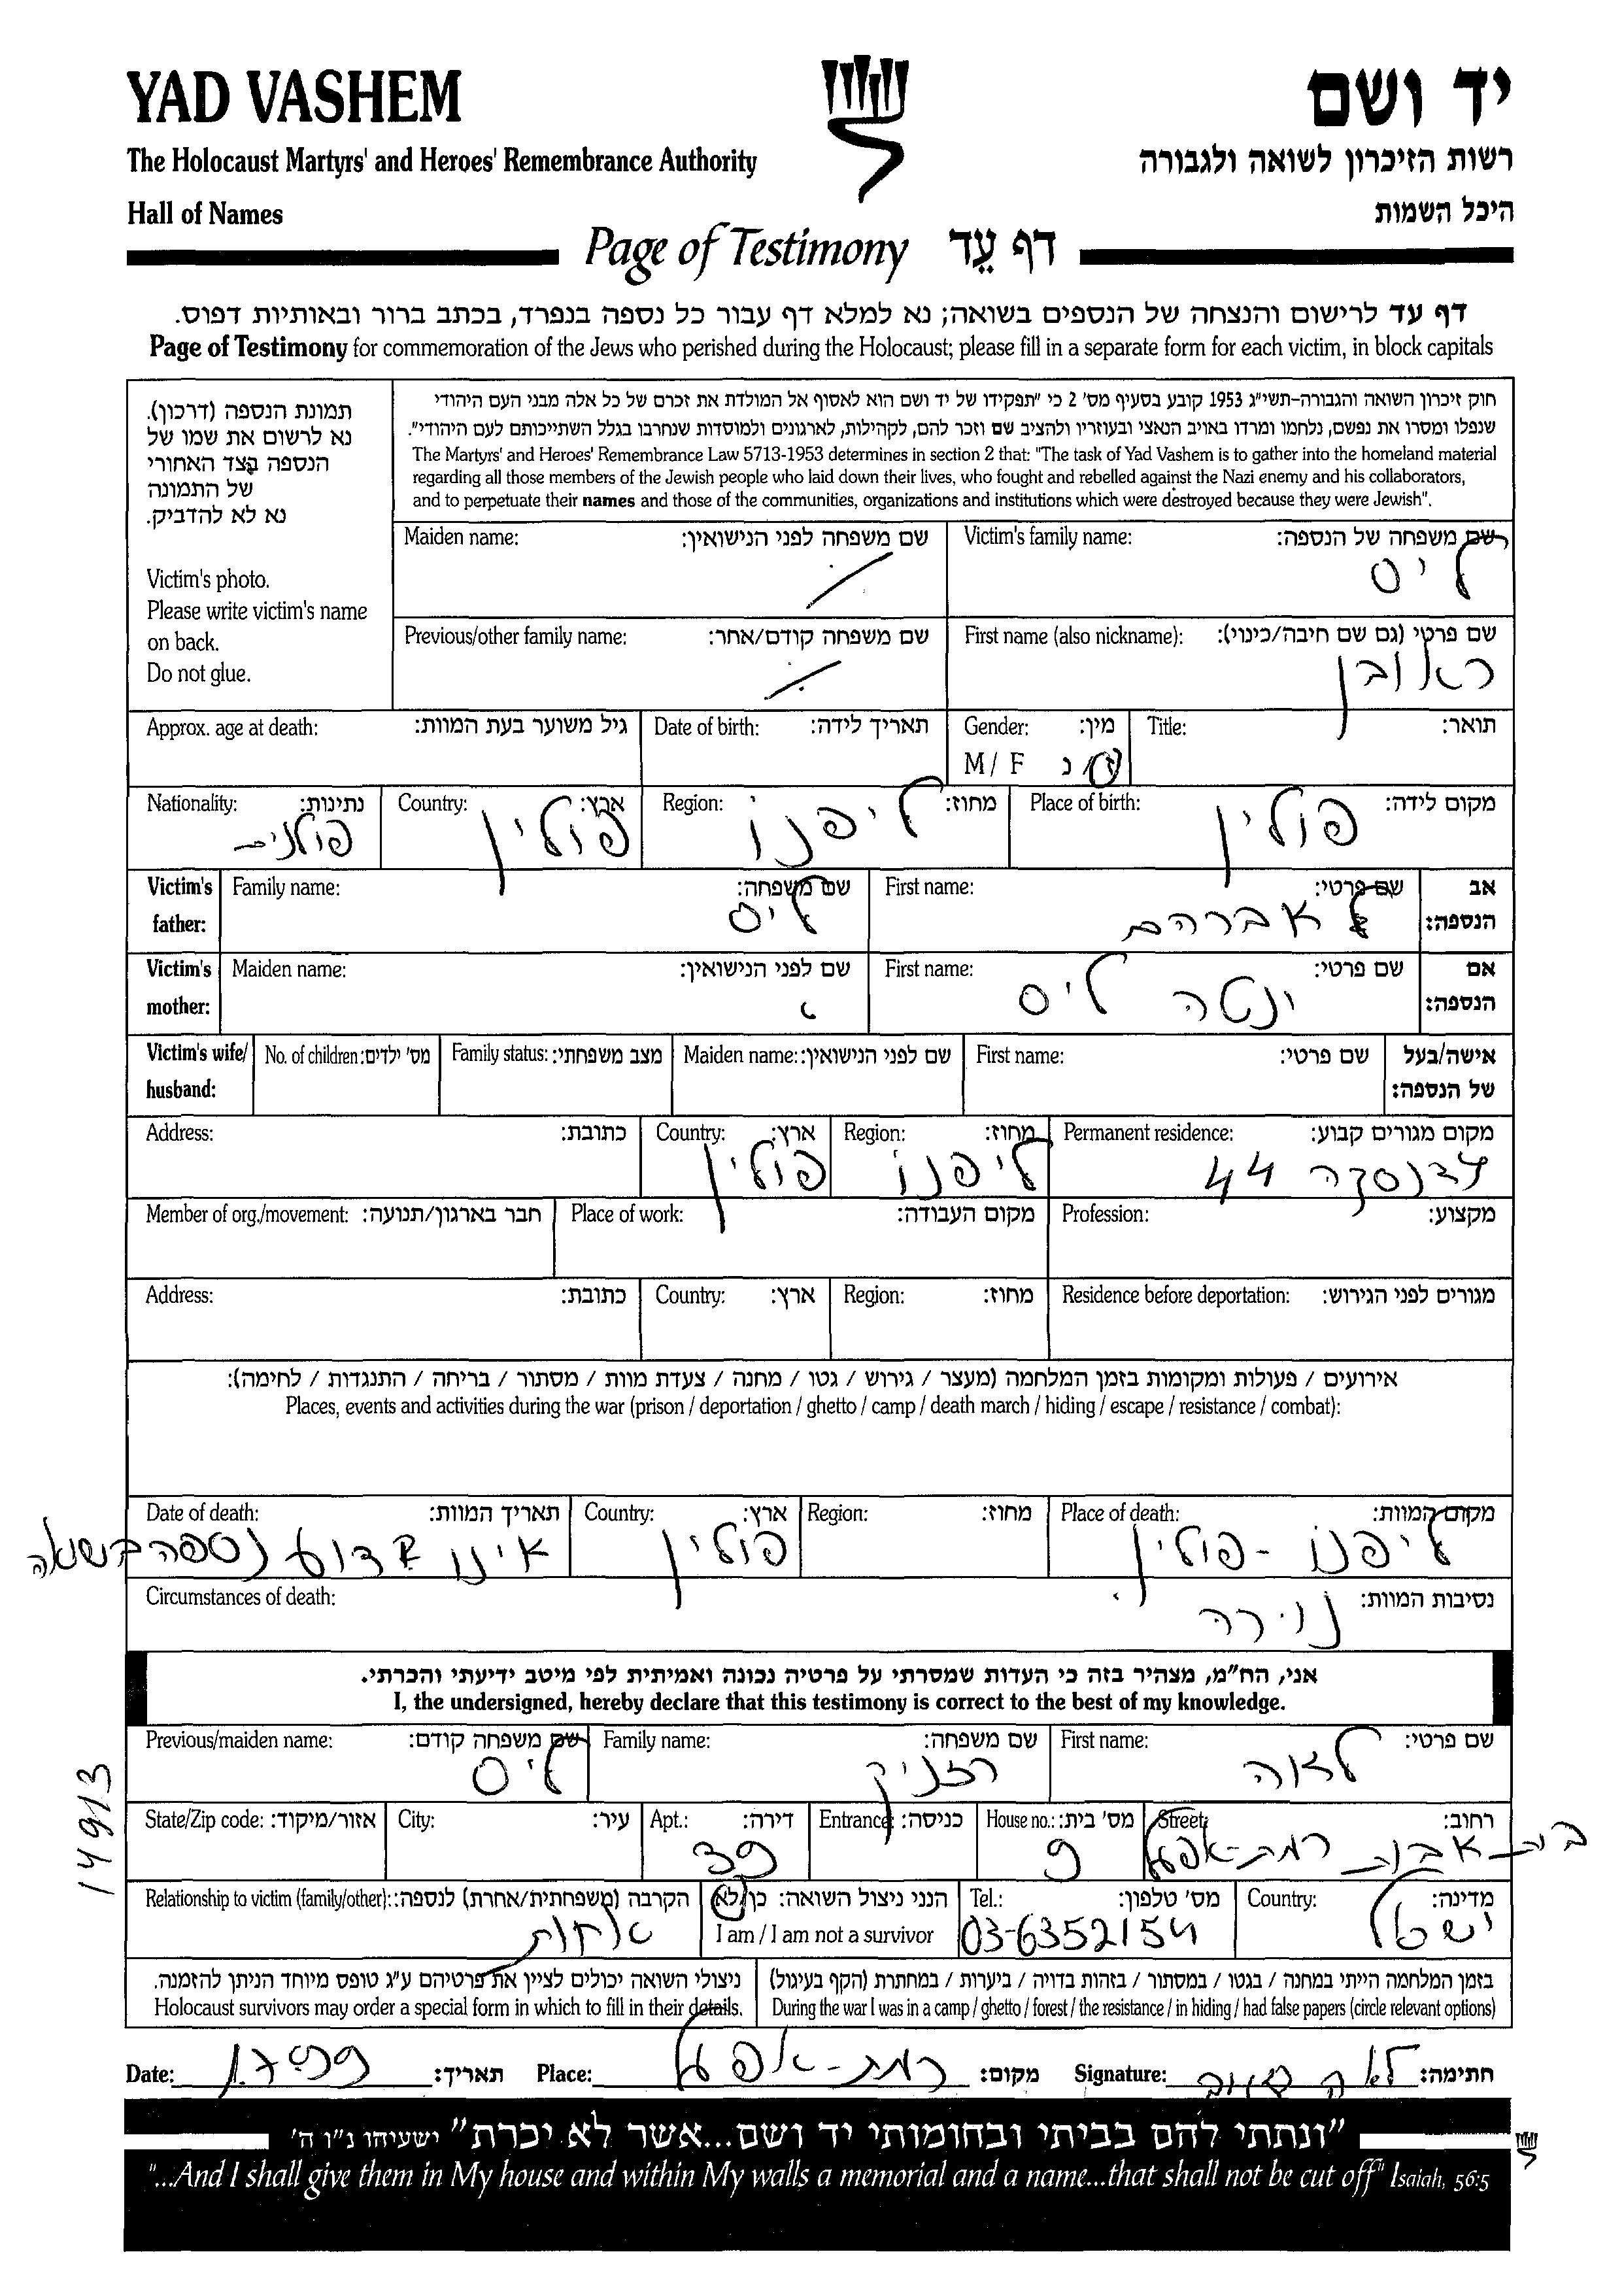 YAD VASHEM
יד ושם
The Holocaust Martyrs' and Heroes' Remembrance Authority
רשות הזיכרון לשואה ולגבורה
Hall of Names
היכל השמות
Page of Testimony דף עֵד
דף עד לרישום והנצחה של הנספים בשואה; נא למלא דף עבור כל נספה בנפרד, בכתב ברור ובאותיות דפוס.
Page of Testimony for commemoration of the Jews who perished during the Holocaust; please fill in a separate form for each victim, in block capitals
תמונת הנספה (דרכון).
נא לרשום את שמו של
הנספה בצד האחורי
של התמונה
נא לא להדביק.
Victim's photo.
Please write victim's name
on back.
Do not glue.
חוק זיכרון השואה והגבורה-תשי"ג 1953 קובע בסעיף מס' 2 כי "תפקידו של יד ושם הוא לאסוף אל המולדת את זכרם של כל אלה מבני העם היהודי
שנפלו ומסרו את נפשם, נלחמו ומרדו באויב הנאצי ובעוזריו ולהציב שם וזכר להם, לקהילות, לארגונים ולמוסדות שנחרבו בגלל השתייכותם לעם היהודי".
The Martyrs' and Heroes' Remembrance Law 5713-1953 determines in section 2 that: "The task of Yad Vashem is to gather into the homeland material
regarding all those members of the Jewish people who laid down their lives, who fought and rebelled against the Nazi enemy and his collaborators,
and to perpetuate their names and those of the communities, organizations and institutions which were destroyed because they were Jewish".
Victim's family name: שם משפחה של הנספה:
ליס
Maiden name: שם משפחה לפני הנישואין:
First name (also nickname): שם פרטי (גם שם חיבה/כינוי):
ראובן
Previous/other family name: שם משפחה קודם/אחר:
Title: תואר:
Gender: מין:
M / F ז/נ
Date of birth: תאריך לידה:
Approx. age at death: גיל משוער בעת המוות:
Place of birth: מקום לידה:
פולין
Region: מחוז:
ליפנו
Country: ארץ:
פולין
Nationality: נתינות:
פולנית
Victim's father: אב הנספה:
First name: שם פרטי:
אברהם
Family name: שם משפחה:
ליס
Victim's mother: אם הנספה:
First name: שם פרטי:
ינטה ליס
Maiden name: שם לפני הנישואין:
Victim's wife/husband: אישה/בעל של הנספה:
First name: שם פרטי:
Maiden name: שם לפני הנישואין:
Family status: מצב משפחתי:
No. of children: מס' ילדים:
Permanent residence: מקום מגורים קבוע:
44
Region: מחוז:
ליפנו
Country: ארץ:
פולין
Address: כתובת:
Profession: מקצוע:
Place of work: מקום העבודה:
Member of org./movement: חבר בארגון/תנועה:
Residence before deportation: מגורים לפני הגירוש:
Region: מחוז:
Country: ארץ:
Address: כתובת:
אירועים / פעולות ומקומות בזמן המלחמה (מעצר / גירוש / גטו / מחנה / צעדת מוות / מסתור / בריחה / התנגדות / לחימה):
Places, events and activities during the war (prison / deportation / ghetto / camp / death march / hiding / escape / resistance / combat):
Place of death: מקום המוות:
ליפנו - פולין
Region: מחוז:
Country: ארץ:
פולין
Date of death: תאריך המוות:
אינו ידוע נספה בשואה
Circumstances of death: נסיבות המוות:
נורה
אני, הח"מ, מצהיר בזה כי העדות שמסרתי על פרטיה נכונה ואמיתית לפי מיטב ידיעתי והכרתי.
I, the undersigned, hereby declare that this testimony is correct to the best of my knowledge.
First name: שם פרטי:
לאה
Family name: שם משפחה:
רזניק
Previous/maiden name: שם משפחה קודם:
ליס
14913
Street: רחוב:
בית-אבות רמת-אפעל
House no.: מס' בית:
9
Entrance: כניסה:
Apt.: דירה:
39
City: עיר:
State/Zip code: אזור/מיקוד:
Country: מדינה:
ישראל
Tel.: מס' טלפון:
03-6352154
הנני ניצול השואה: כן/לא
I am / I am not a survivor
Relationship to victim (family/other): הקרבה (משפחתית/אחרת) לנספה:
אחות
בזמן המלחמה הייתי במחנה / בגטו / במסתור / בזהות בדויה / ביערות / במחתרת (הקף בעיגול)
During the war I was in a camp / ghetto / forest / the resistance / in hiding / had false papers (circle relevant options)
ניצולי השואה יכולים לציין את פרטיהם ע"ג טופס מיוחד הניתן להזמנה.
Holocaust survivors may order a special form in which to fill in their details.
Signature: חתימה:
לאה
Place: מקום:
רמת-אפעל
Date: תאריך:
"ונתתי להם בביתי ובחומותי יד ושם...אשר לא יכרת" ישעיהו נ"ו ה'
"...And I shall give them in My house and within My walls a memorial and a name...that shall not be cut off" Isaiah, 56:5